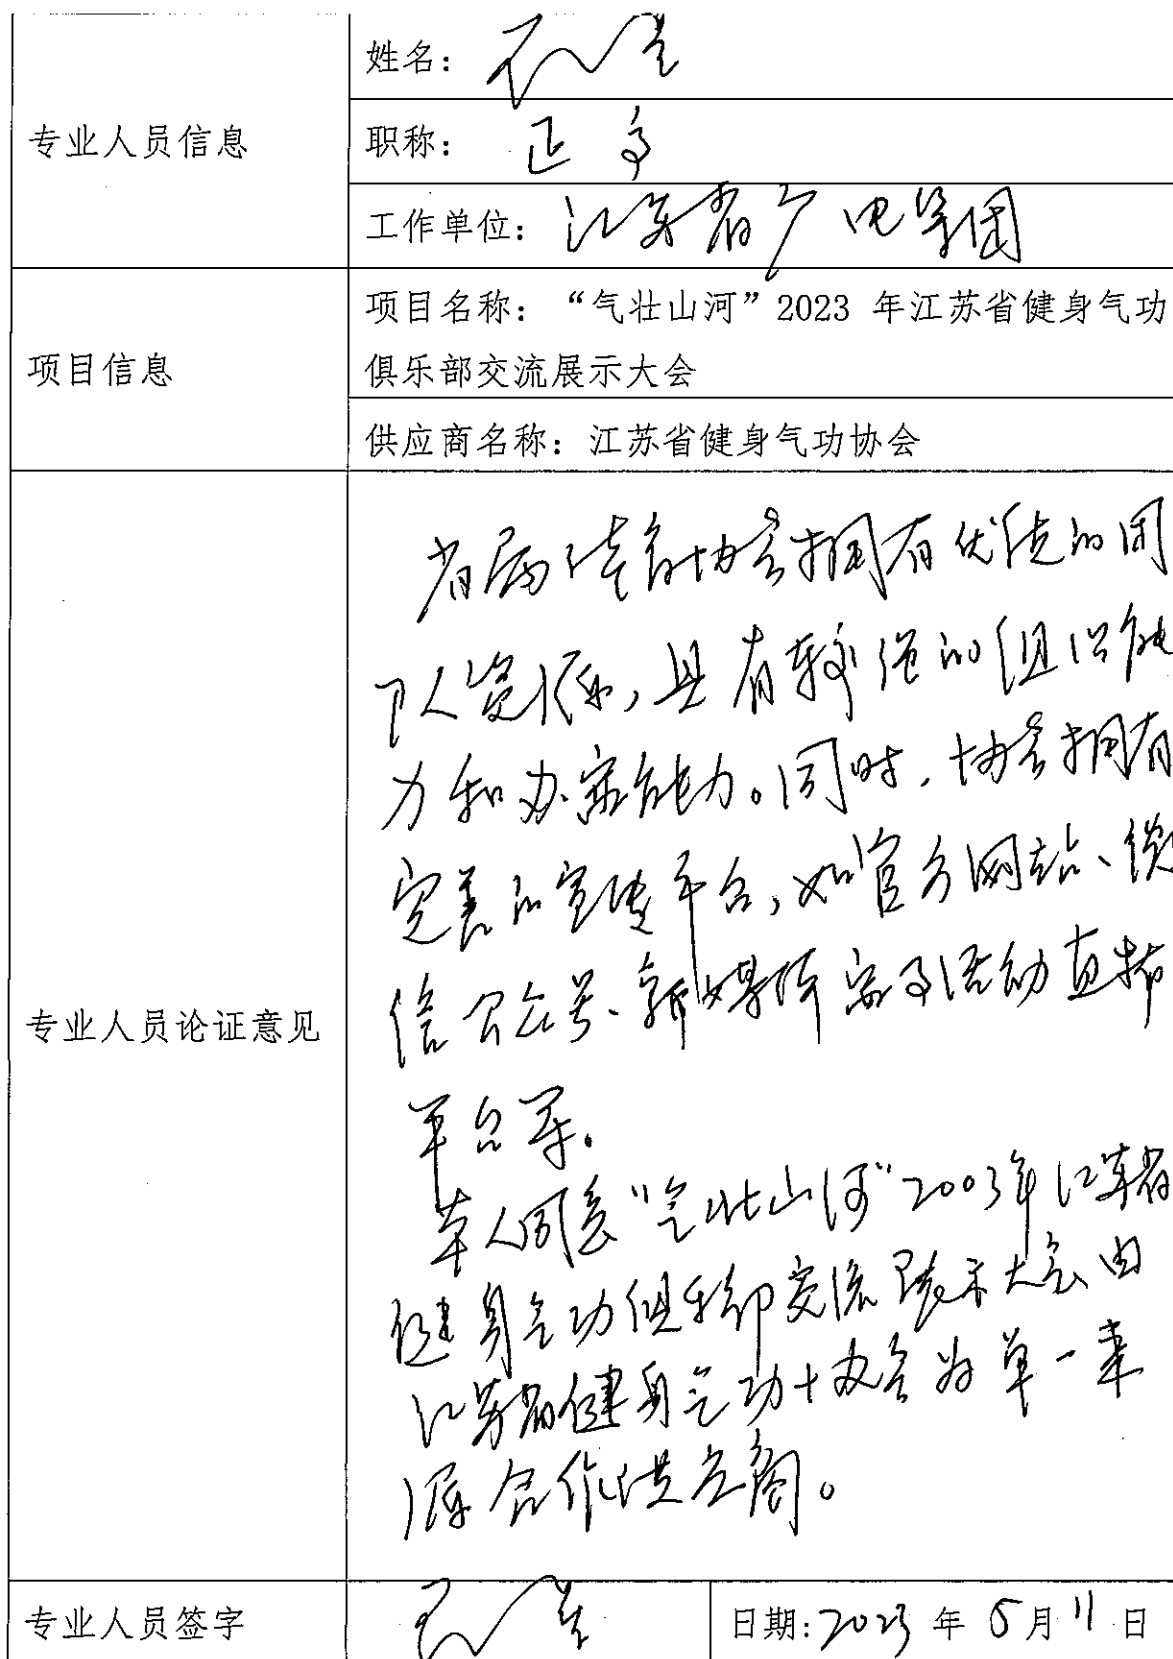 专业人员信息
姓名：
职称： 正高
工作单位： 江苏省广电集团
项目信息
项目名称：“气壮山河”2023 年江苏省健身气功
俱乐部交流展示大会
供应商名称：江苏省健身气功协会
专业人员论证意见
省属体育协会拥有优徒的团
队资源，具有较强的组织能
力和办赛能力。同时，协会拥有
完善的宣传平台，如官方网站、微
信公众号、新媒阵 活动直播
平台等。
本人同意“气壮山河”2003年江苏省
健身气功俱乐部交流展示大会由
江苏省健身气功协会为单一来
源合作供应商。
专业人员签字
日期：2023 年 5 月 11 日